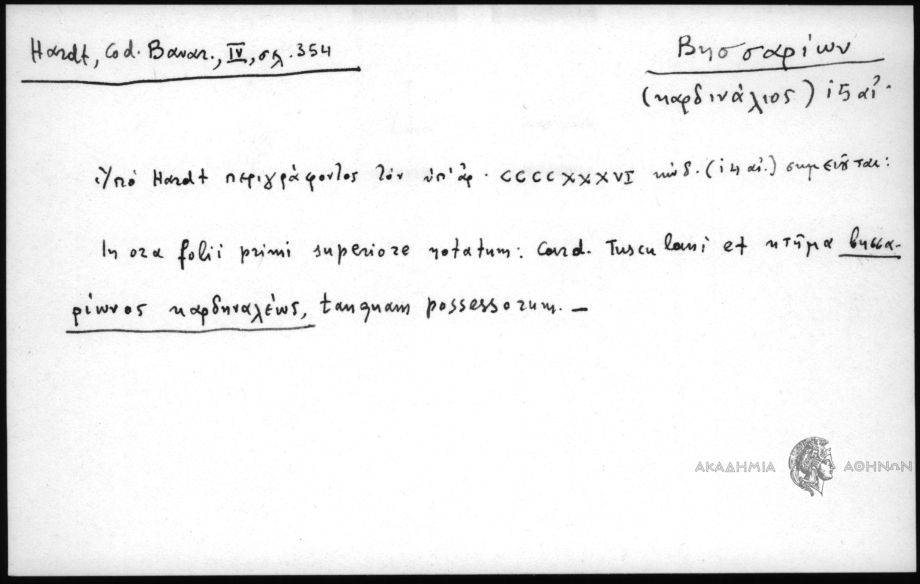 Hardt, Cod. Bavar., IV, σλ. 354
Βησσαρίων
(καρδινάλιος) ιξ αἰ.
Ὑπό Hardt περιγράφοντος τὸν ὑπ' ἀρ. CCCCXXXVI κώδ. (ιη αἰ.) σημειοῦται:
In ora folii primi superiore notatum: Card. Tusculani et κτῆμα βησσα-
ρίωνος καρδηναλέως, tanquam possessorum. —
ΑΚΑΔΗΜΙΑ ΑΘΗΝΩΝ